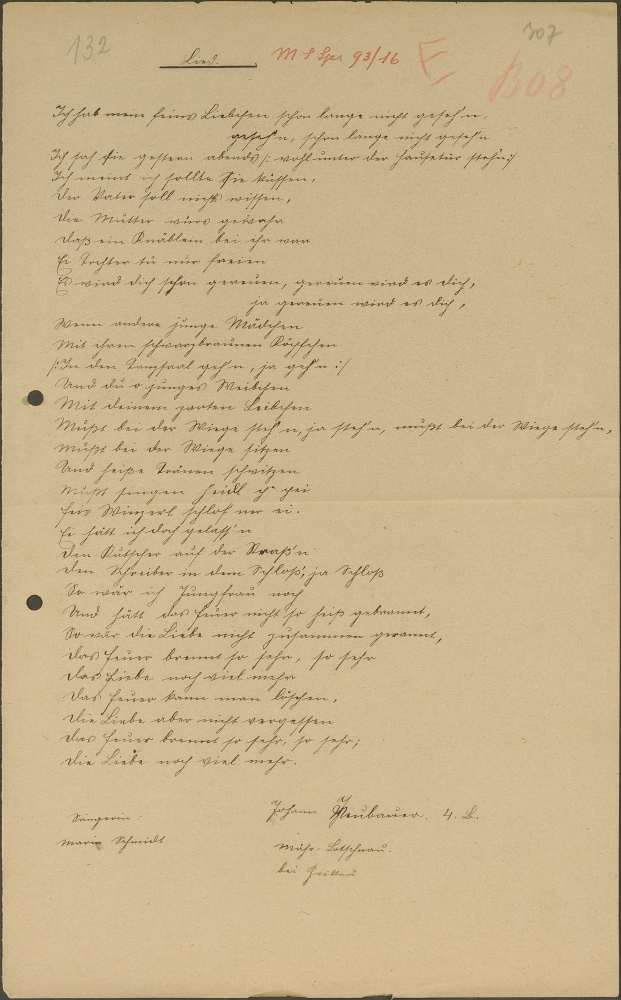 132
307
Lied.
M S Spr 93/16
B08
Ich hab mein feins Liebchen schon lange nicht geseh'n,
geseh'n, schon lange nicht geseh'n
Ich sah sie gestern abends /: wohl unter der Haustür steh'n :/
Ich meint ich sollte sie küssen,
Der Vater soll nicht wissen,
Die Mutter würs gewahr
Daß ein Knäblein bei ihr war
Ei Tochter tu nur freien
Es wird dich schon gereuen, gereuen wird es dich,
ja gereuen wird es dich,
Wenn andere junge Mädchen
Mit ihren schwarzbraunen Köpfchen
/: In den Tanzsaal geh'n, ja geh'n :/
Und du o junges Weibchen
Mit deinem zarten Leibchen
Mußt bei der Wiege steh'n, ja steh'n, mußt bei der Wiege steh'n,
Mußt bei der Wiege sitzen
Und heiße Tränen schwitzen
Mußt singen
schlof ner ei.
Ei hätt ich doch gelass'n
Den Kutscher auf der Straß'n
Den Schreiber in dem Schloß, ja Schloß
So wär ich Jungfrau noch
Und hätt das Feuer nicht so heiß gebrannt,
So wär die Liebe nicht zusammen gerannt,
Das Feuer brennt so sehr, so sehr
Das Liebe noch viel mehr
Das Feuer kann man löschen,
Die Liebe aber nicht vergessen
Das Feuer brennt so sehr, so sehr;
Die Liebe noch viel mehr.
Sängerin:
Maria Schmidt
Johann Neubauer. 4. B.
Mähr. Lotschnau.
bei Zwittau